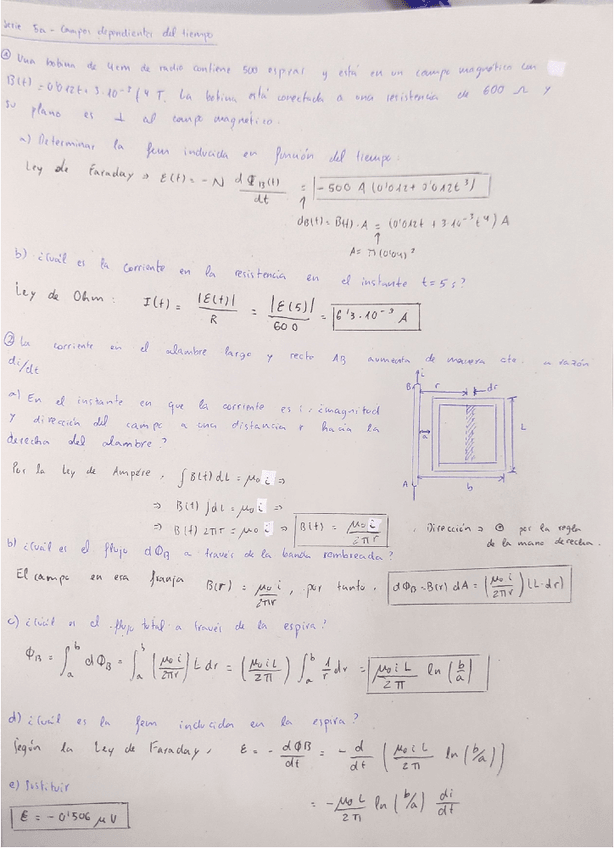 Serie 5a - Campos dependientes del tiempo
① Una bobina de 4cm de radio contiene 500 espiras y está en un campo magnético con
B(t) = 0'012t + 3·10⁻⁵ t⁴ T. La bobina está conectada a una resistencia de 600 Ω y
su plano es ⊥ al campo magnético.
a) Determinar la fem inducida en función del tiempo.
Ley de Faraday ⇒ ε(t) = -N dΦB(t)/dt = -500 A (0'012 + 0'012t³)
dB(t) = B(t)·A = (0'012t + 3·10⁻⁵t⁴) A
A = π(0'04)²
b) ¿Cuál es la corriente en la resistencia en el instante t=5s?
Ley de Ohm: I(t) = |ε(t)|/R = |ε(5)|/600 = 6'3·10⁻³ A
② La corriente en el alambre largo y recto AB aumenta de manera cte. a razón
di/dt
a) En el instante en que la corriente es i, ¿magnitud
y dirección del campo a una distancia r hacia la
derecha del alambre?
B i r dr
a L
A b
Por la Ley de Ampére, ∫B(t)dL = μ₀ i ⇒
⇒ B(t) ∫dL = μ₀ i ⇒
⇒ B(t) 2πr = μ₀ i ⇒ B(t) = μ₀ i/2πr . Dirección ⇒ por la regla
de la mano derecha.
b) ¿Cuál es el flujo dΦB a través de la banda sombreada?
El campo en esa franja B(r) = μ₀ i/2πr, por tanto, dΦB = B(r) dA = (μ₀ i/2πr) (L·dr)
c) ¿Cuál es el flujo total a través de la espira?
ΦB = ∫ₐᵇ dΦB = ∫ₐᵇ (μ₀ i/2πr) L dr = (μ₀ i L/2π) ∫ₐᵇ 1/r dr = μ₀ i L/2π ln (b/a)
d) ¿Cuál es la fem inducida en la espira?
Según la Ley de Faraday, ε = - dΦB/dt = - d/dt (μ₀ i L/2π ln (b/a))
e) Sustituir
= -μ₀ L/2π ln (b/a) di/dt
ε = -0'506 μV